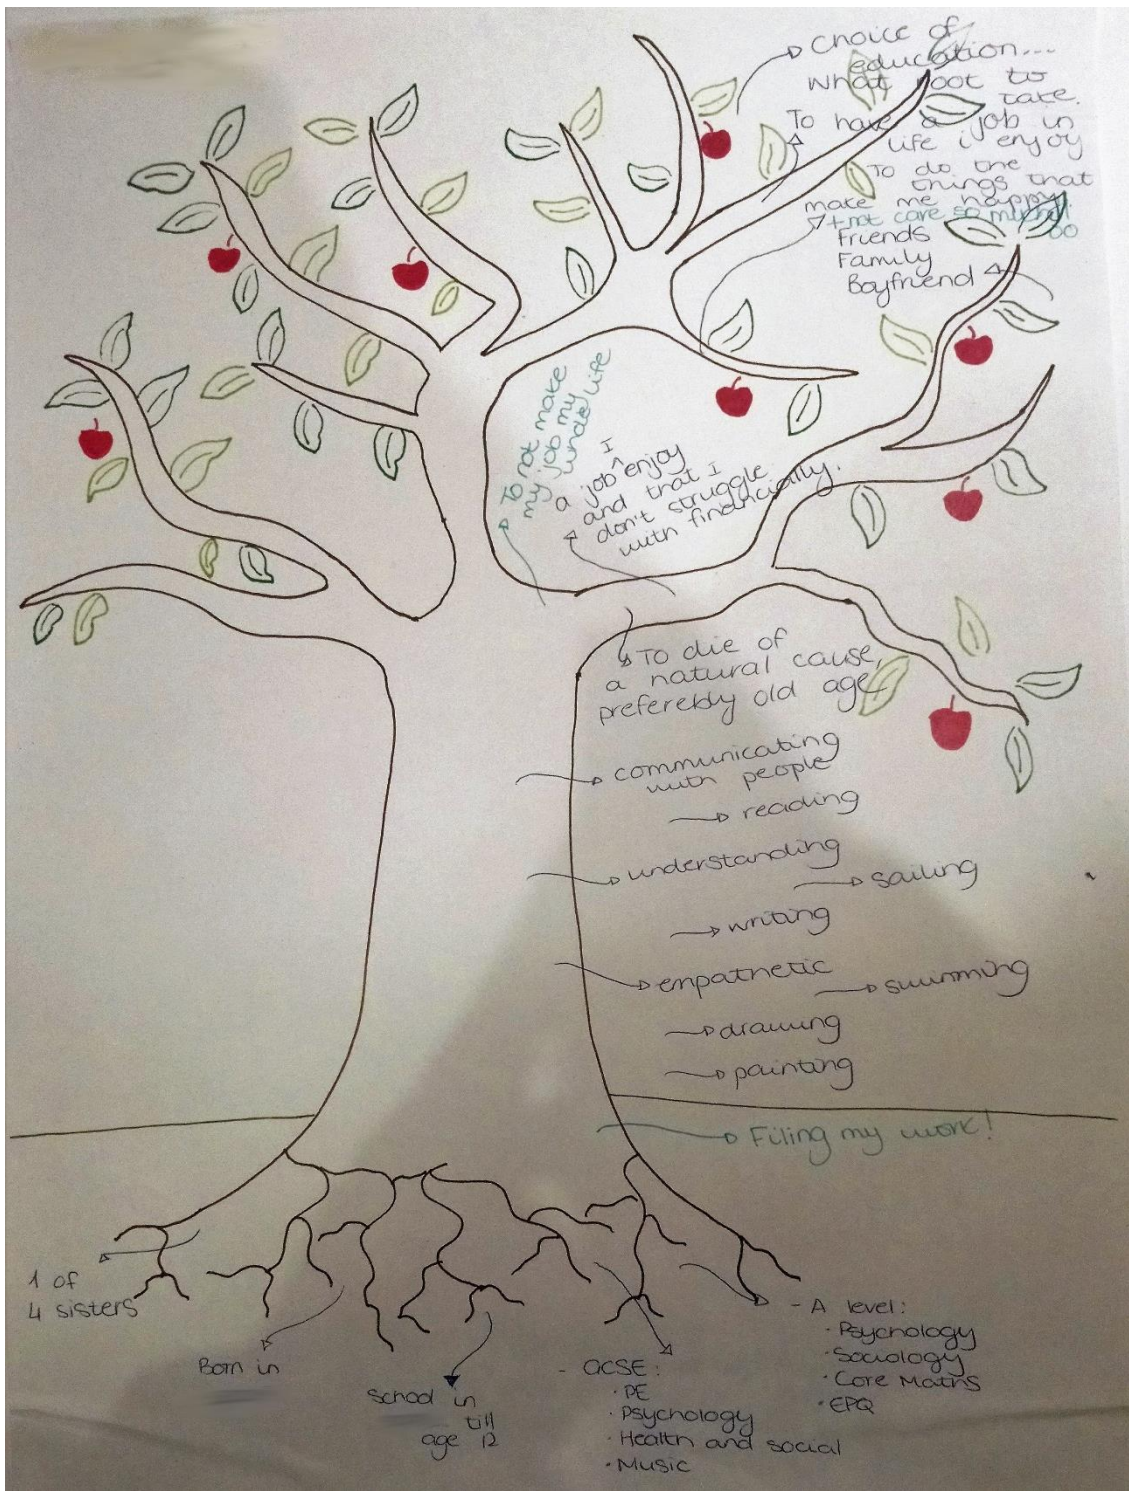 Choice of
education...
what root to
take.
To have a job in
life i enjoy
To do the
things that
make me happy
+not care so much!
Friends
Family
Boyfriend
To not make
my job my
whole life
I
a job enjoy
and that I
don't struggle
with financially.
To die of
a natural cause,
preferebly old age
communicating
with people
reading
understanding
sailing
writing
empathetic
swimming
drawing
painting
Filing my work!
1 of
4 sisters
Born in
School in
till
age 12
- GCSE:
· PE
· Psychology
· Health and social
· Music
- A level:
· Psychology
· Sociology
· Core Maths
· EPQ